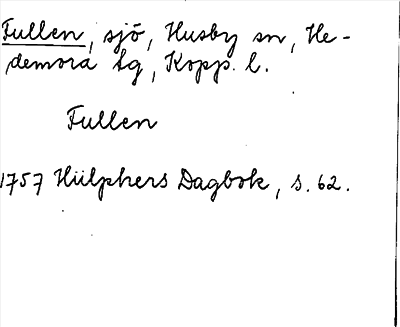 Fullen, sjö, Husby sn, He-
demora tg, Kopp. l.
Fullen
1757 Hülphers Dagbok, s. 62.